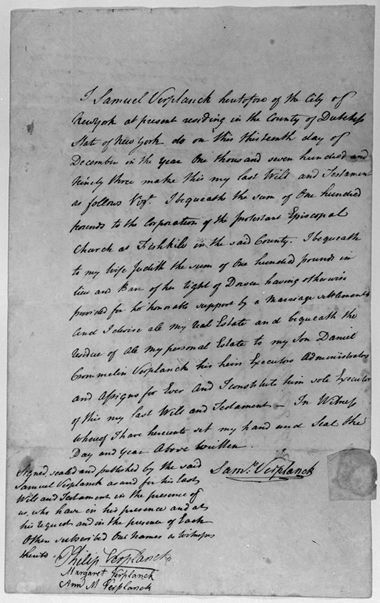 I Samuel Verplanck heretofore of the City of
New York at present residing in the County of Dutchess
State of New York do on this thirteenth day of
December in the Year One thousand seven hundred and
Ninety three make this my last Will and Testament
as follows Viz. I bequeath the sum of One hundred
pounds to the Corporation of the Protestant Episcopal
Church at Fishkill in the said County. I bequeath
to my wife Judith the sum of One hundred pounds in
lieu and Barr of her Right of Dower having otherwise
provided for her honorable support by a Marriage settlement
And I devise all my real Estate and bequeath the
residue of all my personal Estate to my Son Daniel
Crommelin Verplanck his heirs Executors Administrators
and Assigns for Ever And I constitute him sole Executor
of this my last Will and Testament In Witness
whereof I have hereunto set my hand and Seal the
Day and year Above written
Saml. Verplanck
Signed sealed and published by the said
Samuel Verplanck as and for his last
Will and Testament in the presence of
us who have in his presence and at
his request and in the presence of Each
Other subscribed Our names as witnesses
thereto
Philip Verplanck
Margaret Verplanck
Ann M Verplanck